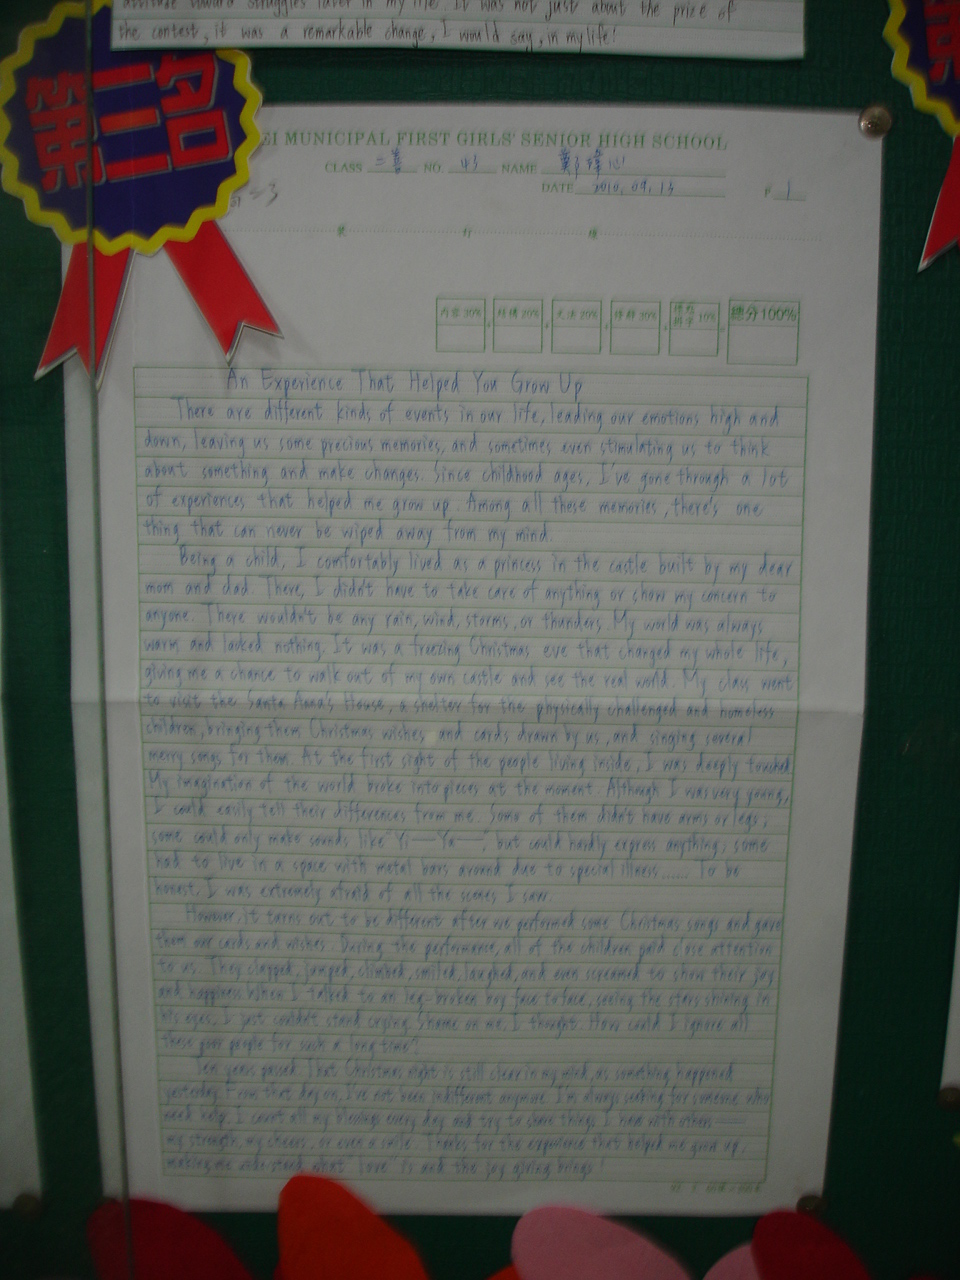 attitude toward struggles later in my life. It was not just about the prize of
the contest, it was a remarkable change, I would say, in my life!
第三名
EI MUNICIPAL FIRST GIRLS' SENIOR HIGH SCHOOL
CLASS NO. NAME
DATE 2010. 09. 13 1
內容 30% 結構 20% 文法 20% 總分100%
An Experience That Helped You Grow Up
There are different kinds of events in our life, leading our emotions high and
down, leaving us some precious memories, and sometimes even stimulating us to think
about something and make changes. Since childhood ages, I've gone through a lot
of experiences that helped me grow up. Among all these memories, there's one
thing that can never be wiped away from my mind.
Being a child, I comfortably lived as a princess in the castle built by my dear
mom and dad. There, I didn't have to take care of anything or show my concern to
anyone. There wouldn't be any rain, wind, storms, or thunders. My world was always
warm and lacked nothing. It was a freezing Christmas eve that changed my whole life,
giving me a chance to walk out of my own castle and see the real world. My class went
to visit the Santa Anna's House, a shelter for the physically challenged and homeless
children, bringing them Christmas wishes and cards drawn by us, and singing several
merry songs for them. At the first sight of the people living inside, I was deeply touched.
My imagination of the world broke into pieces at the moment. Although I was very young,
I could easily tell their differences from me. Some of them didn't have arms or legs;
some could only make sounds like "Yi——Ya——", but could hardly express anything; some
had to live in a space with metal bars around due to special illness...... To be
honest, I was extremely afraid of all the scenes I saw.
However, it turns out to be different after we performed some Christmas songs and gave
them our cards and wishes. During the performance, all of the children paid close attention
to us. They clapped, jumped, climbed, smiled, laughed, and even screamed to show their joy
and happiness. When I talked to an leg-broken boy face to face, seeing the stars shining in
his eyes, I just couldn't stand crying. Shame on me, I thought. How could I ignore all
these poor people for such a long time?
Ten years passed. That Christmas night is still clear in my mind, as something happened
yesterday. From that day on, I've not been indifferent anymore. I'm always seeking for someone who
need help. I count all my blessings every day and try to share things I have with others——
my strength, my cheers, or even a smile. Thanks for the experience that helped me grow up,
making me understand what "love" is and the joy giving brings!